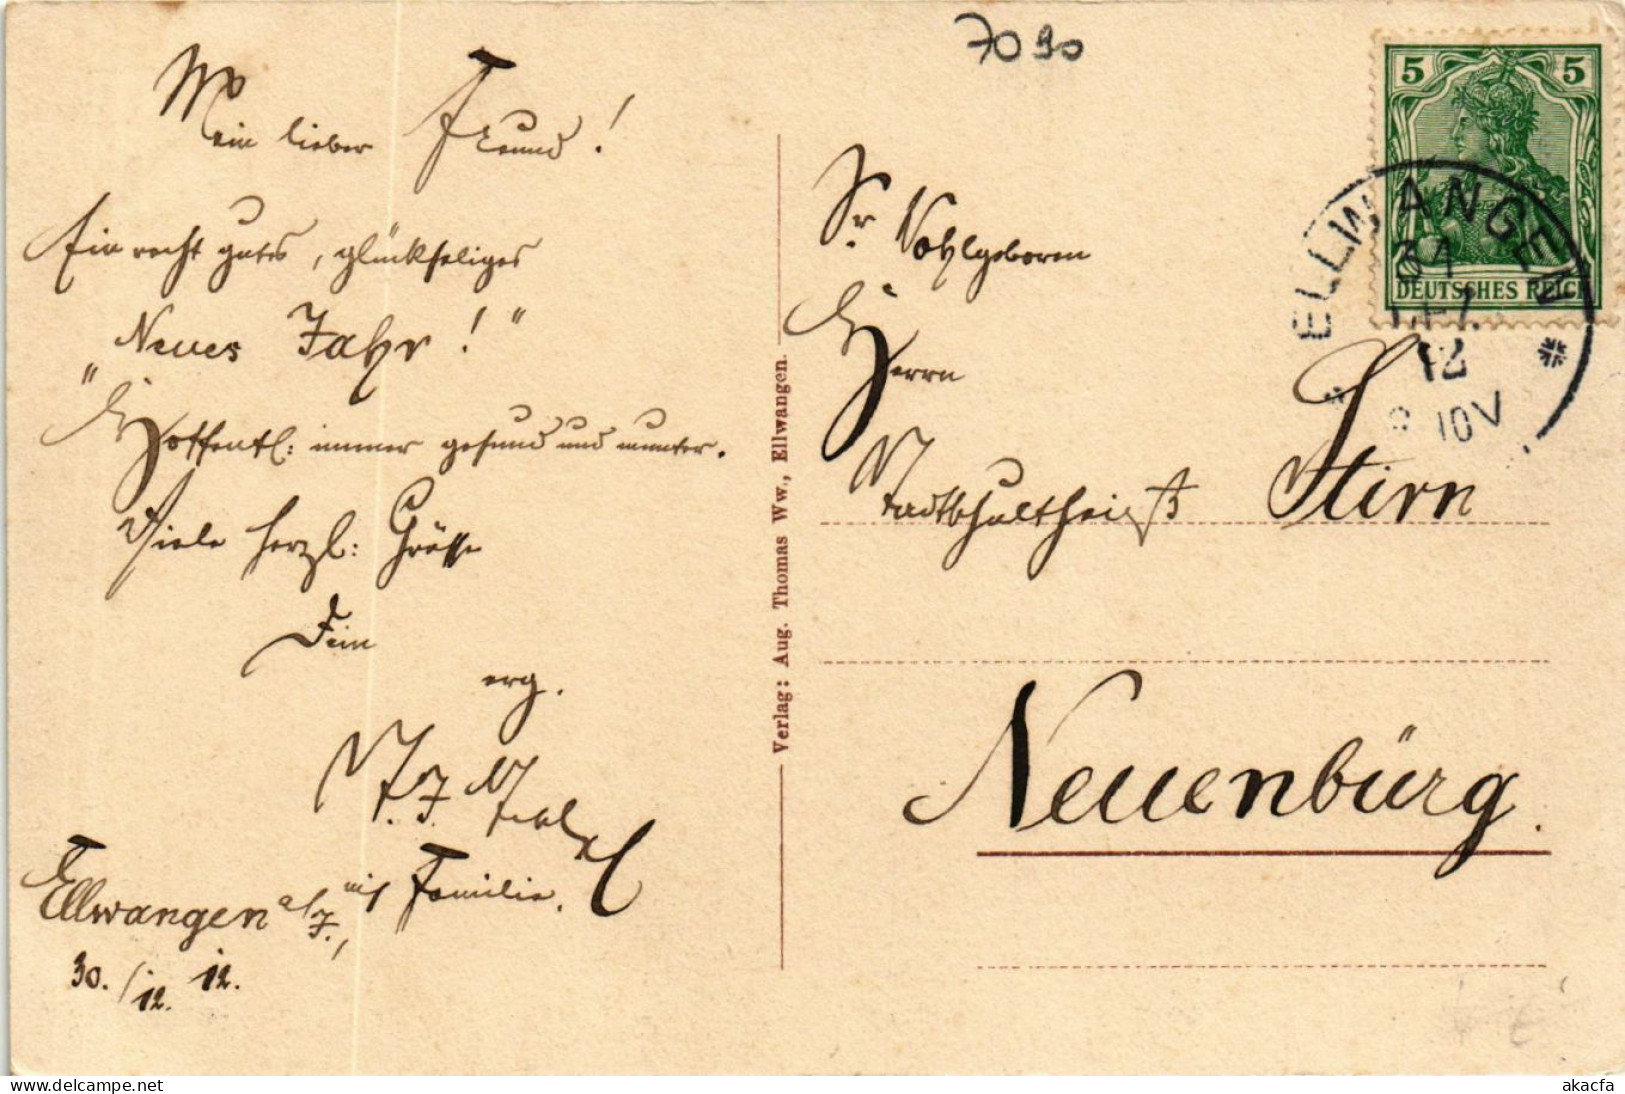 7090
Mein lieber Freund!
Ein recht gutes, glückseliges
"Neues Jahr!"
Hoffentl: immer gesund und munter.
Viele herzl: Grüße
Dein
erg.
mit Familie.
Ellwangen a/J.,
30./12. 12.
Verlag: Aug. Thomas Ww., Ellwangen.
5 5
DEUTSCHES REICH
ELLWANGEN
31
12
10V
Sr. Wohlgeboren
Herrn
Stadtschultheiß Stirn
Neuenbürg.
akacfa